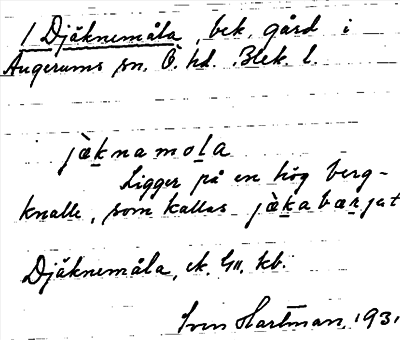 1 Djäknemåla, bek. gård i
Augerums sn. Ö. hd. Blek. l.
jæknamola
Ligger på en hög berg-
knalle, som kallas jækabærjat
Djäknemåla, ek. kb.
Sven Hartman, 1931